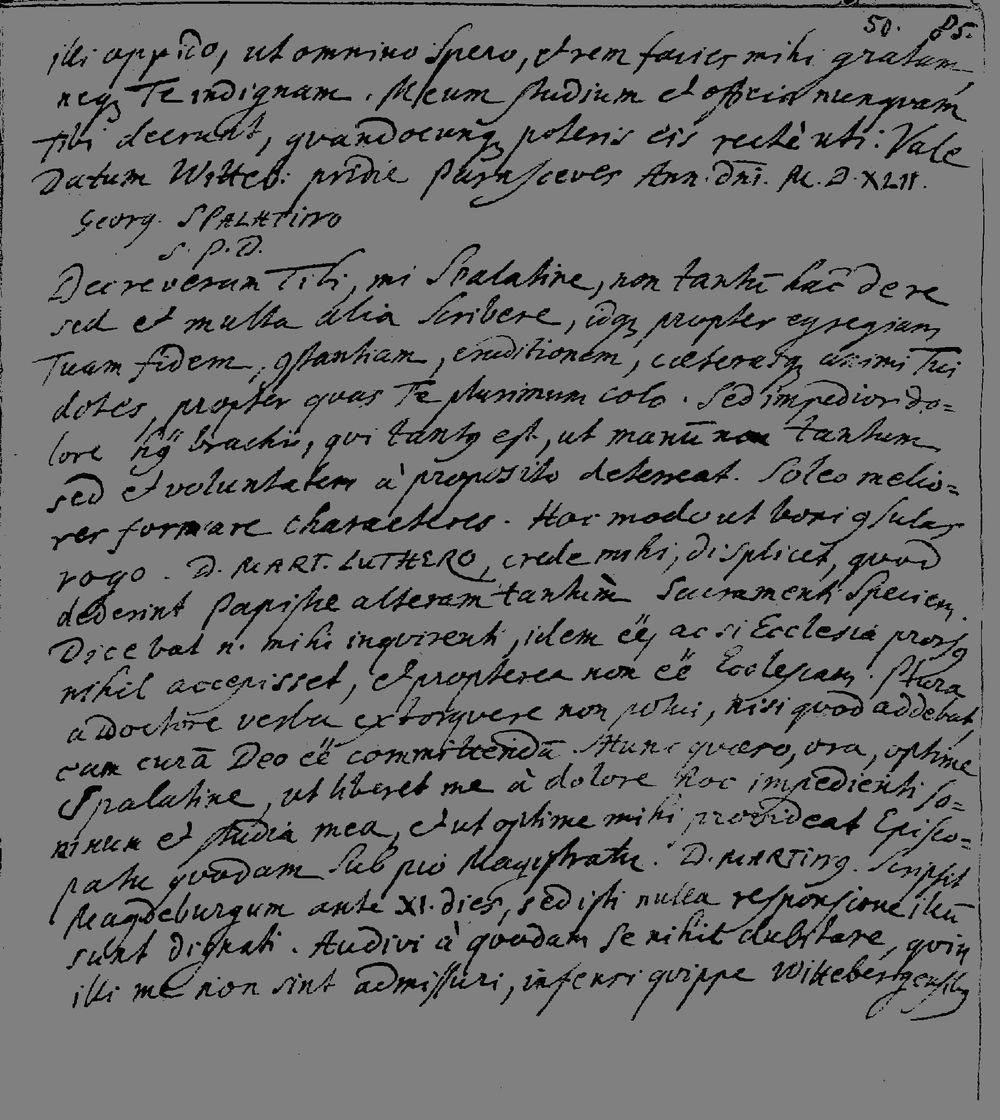 50. 85.
illi oppido, ut omnino spero, et rem facies mihi gratam,
neqȝ Te indignam. Meum studium et officia nunquam
tibi deerunt, quandocunqȝ poteris eis rectè uti. Vale
Datum Witteb: pridie Parasceves Ann. dñi. M. D. XLII.
Georg. SPALATINO
S. P. D.
Decreveram Tibi, mi Spalatine, non tantū hac de re
sed et multa alia scribere, idqȝ propter egregiam
Tuam fidem, ꝯstantiam, eruditionem, cæterasqȝ animi Tui
dotes, propter quas Te plurimum colo. Sed impedior do=
lore hꝰ brachii, qui tantꝰ est, ut manū non tantum
sed et voluntatem à proposito deterreat. Soleo melio=
res formare characteres. Hoc modo ut boni ꝯsulas
rogo. D. MART. LUTHERO, crede mihi, displicet, quod
dederint Papistæ alteram tantùm Sacramenti speciem.
Dicebat n. mihi inquirenti, idem eē, ac si Ecclesia prorsꝰ
nihil accepisset, et propterea non eē Ecclesiam. Plura
a doctore verba extorquere non potui, nisi quod addebat,
eam curā Deo eē committendā. Nunc quæso, ora, optime
Spalatine, ut liberet me à dolore hoc impedienti so=
mnum et studia mea, et ut optime mihi provideat Episco=
patu quodam sub pio Magistratu. D. MARTINꝰ. scripsit
Magdeburgum ante XI. dies, sed isti nulla responsione illū
sunt dignati. Audivi à quodam se nihil dubitare, quin
illi me non sint admissuri, infensi quippe Wittebergensibꝰ